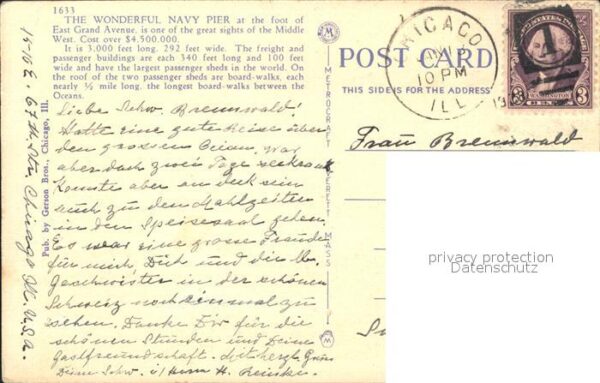 1633
THE WONDERFUL NAVY PIER at the foot of
East Grand Avenue, is one of the great sights of the Middle
West. Cost over $4,500,000.
It is 3,000 feet long, 292 feet wide. The freight and
passenger buildings are each 340 feet long and 100 feet
wide and have the largest passenger sheds in the world. On
the roof of the two passenger sheds are board-walks, each
nearly ½ mile long, the longest board-walks between the
Oceans.
Liebe Schw. Brennwald!
Hatte eine gute Reise über
den grossen Ozean, war
aber doch zwei Tage seekrank
Konnte aber an deck sein
auch zu den Mahlzeiten
in den Speisesaal gehen.
Es war eine grosse Freude
für mich, Dich und die lb.
Geschwister in der schönen
Schweiz noch einmal zu
sehen. Danke Dir für die
schönen Stunden und Deine
Gastfreundschaft. Mit herzl. Gruss
Deine Schw. i/ Herrn H. Reinke.
67th Str. Chicago Ill. U.S.A.
Pub. by Gerson Bros., Chicago, Ill.
METROCRAFT EVERETT MASS
POST CARD
THIS SIDE IS FOR THE ADDRESS
CHICAGO
10 PM
ILL
UNITED STATES POSTAGE
WASHINGTON
3 3
Frau Brennwald
privacy protection
Datenschutz